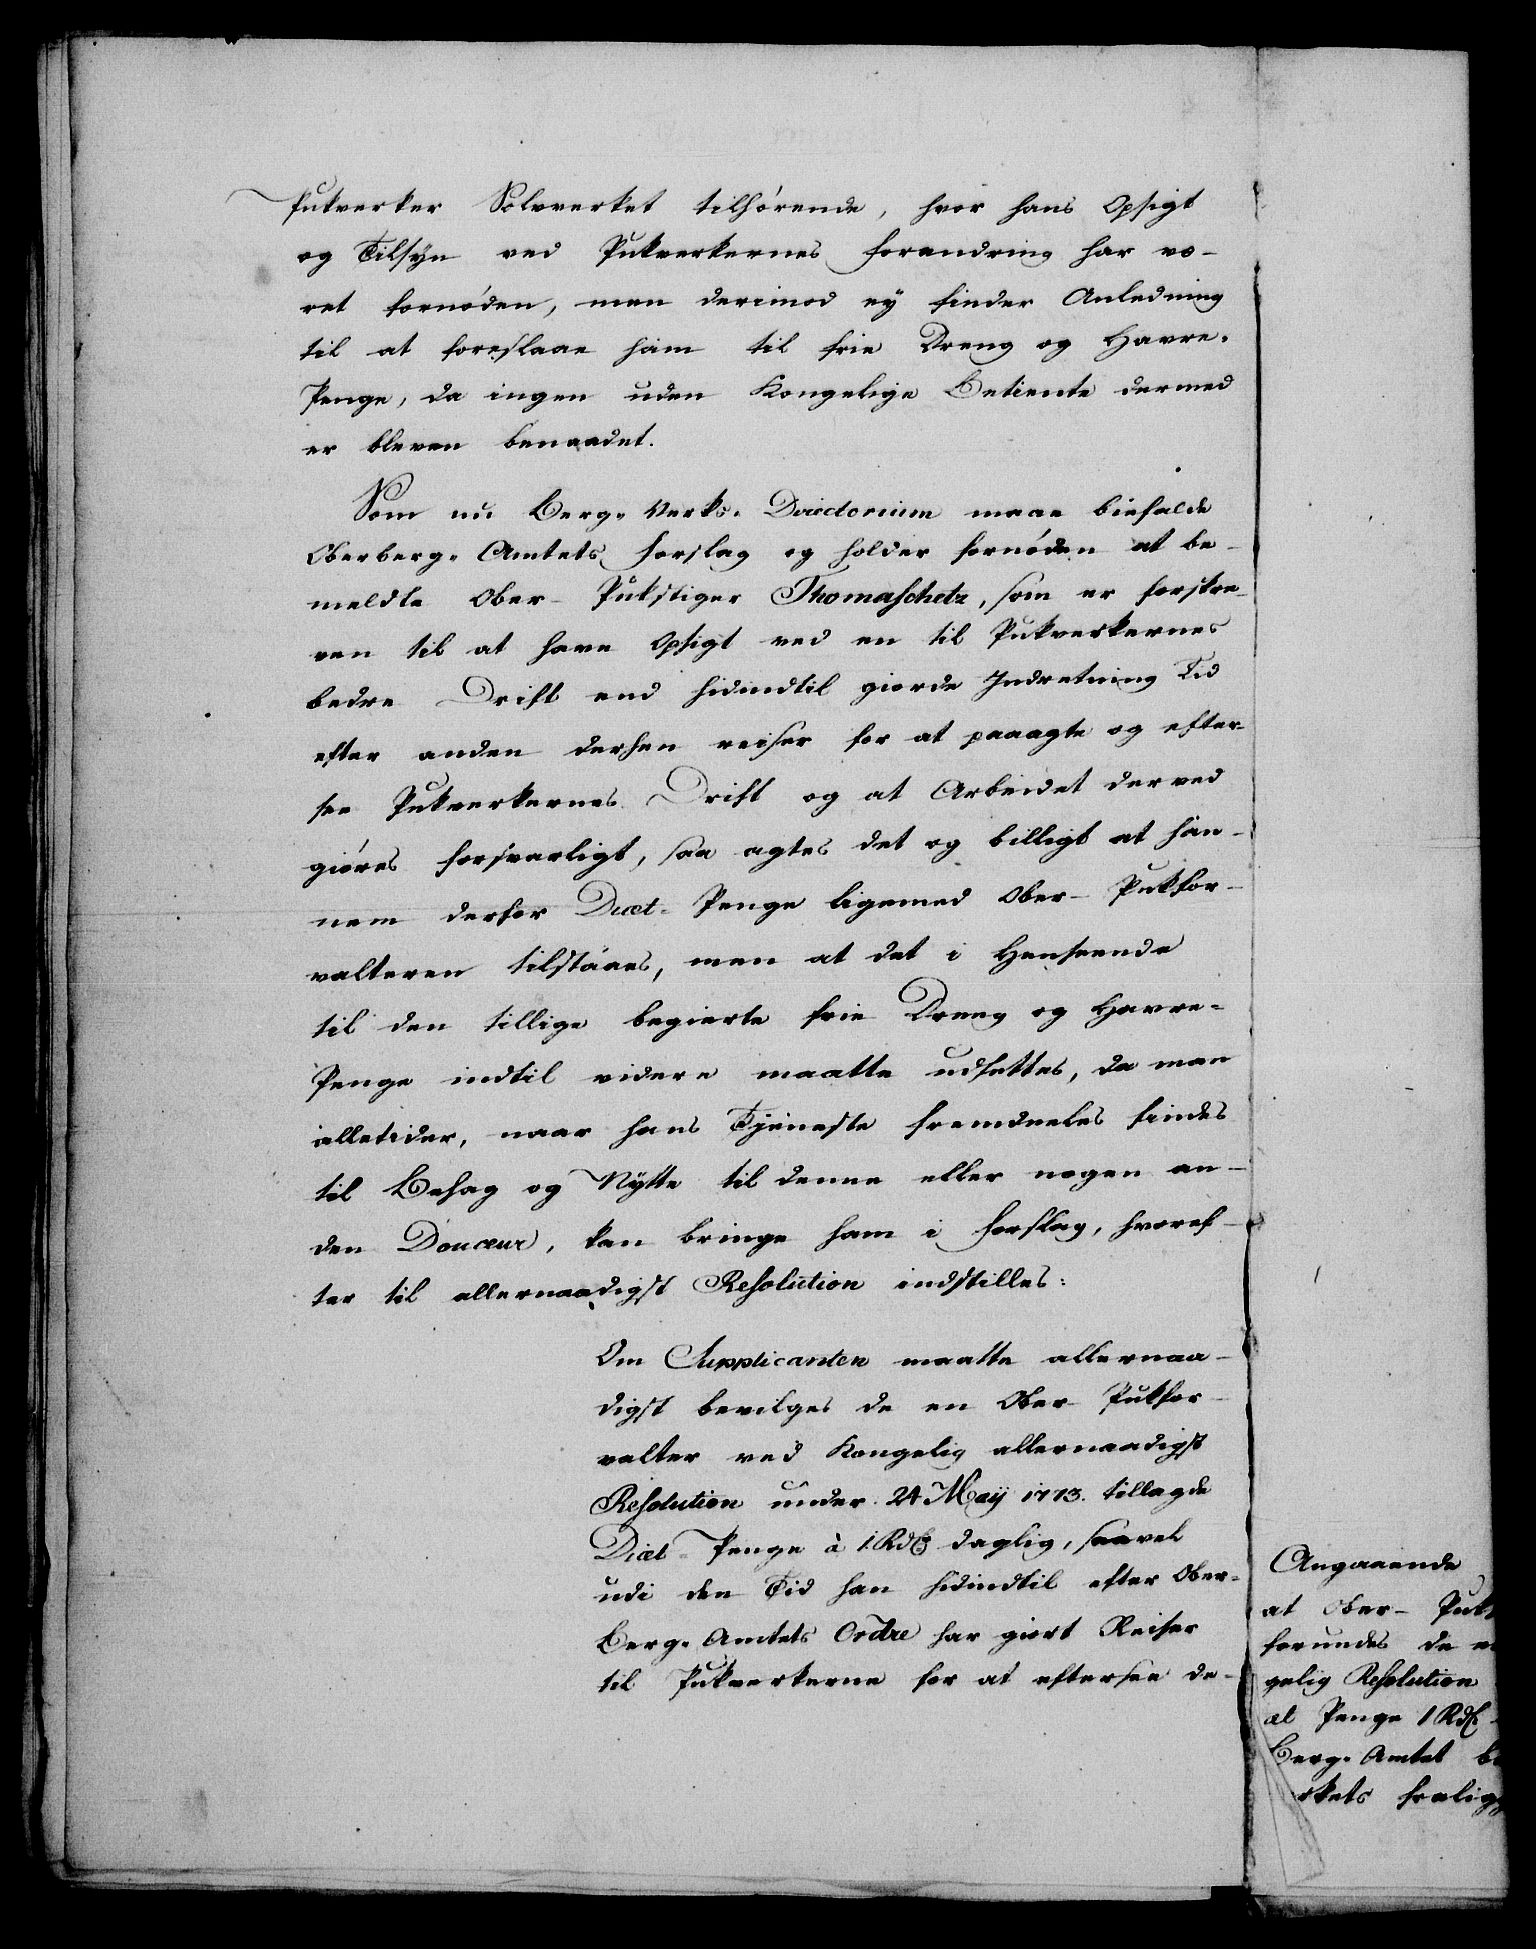 Pukverker Sølvverket tilhørende, hvor hans Opsigt
og Tilsyn ved Pukverkernes forandring har væ-
ret fornøden, men derimod ey finder Anledning
til at foreslaae ham til frie Dreng og Havre-
Penge, da ingen uden Kongelige Betiente dermed
er bleven benaadet.
Som nu Berg-Verks-Directorium maae biefalde
Oberberg-Amtets forslag og holder fornøden at be-
meldte Ober-Pukstiger Thomaschetz, som er forskre-
ven til at have Opsigt ved en til Pukverkernes
bedre Drift end hidindtil giorde Indretning Tid
efter anden derhen reiser for at paaagte og efter-
see Pukverkernes Drift og at Arbeidet derved
giøres forsvarligt, saa agtes det og billigt at han-
nem derfor Diæt-Penge ligemed Ober-Pukfor-
valteren tilstaaes, men at det i Henseende
til den tillige begierte frie Dreng og Havre-
Penge indtil videre maatte udsettes, da man
alletider, naar hans Tjeneste fremdeeles findes
til Behag og Nytte til denne eller nogen an-
den Douceur, kan bringe ham i forslag, hvoref-
ter til allernaadigst Resolution indstilles:
Om Supplicanten maatte allernaa-
digst bevilges de en Ober-Pukfor-
valter ved Kongelig allernaadigst
Resolution under 24 Maij 1773. tillagde
Diæt-Penge à 1 Rdlr daglig, saavel
udi den Tid han hidindtil efter Ober-
Berg-Amtets Ordre har giort Reiser
til Pukverkerne for at eftersee de-
Angaaende
at Ober-Puk
forundes de e
gelig Resolution
æt Penge 1 Rdlr
Berg-Amtet b
rkets fralig